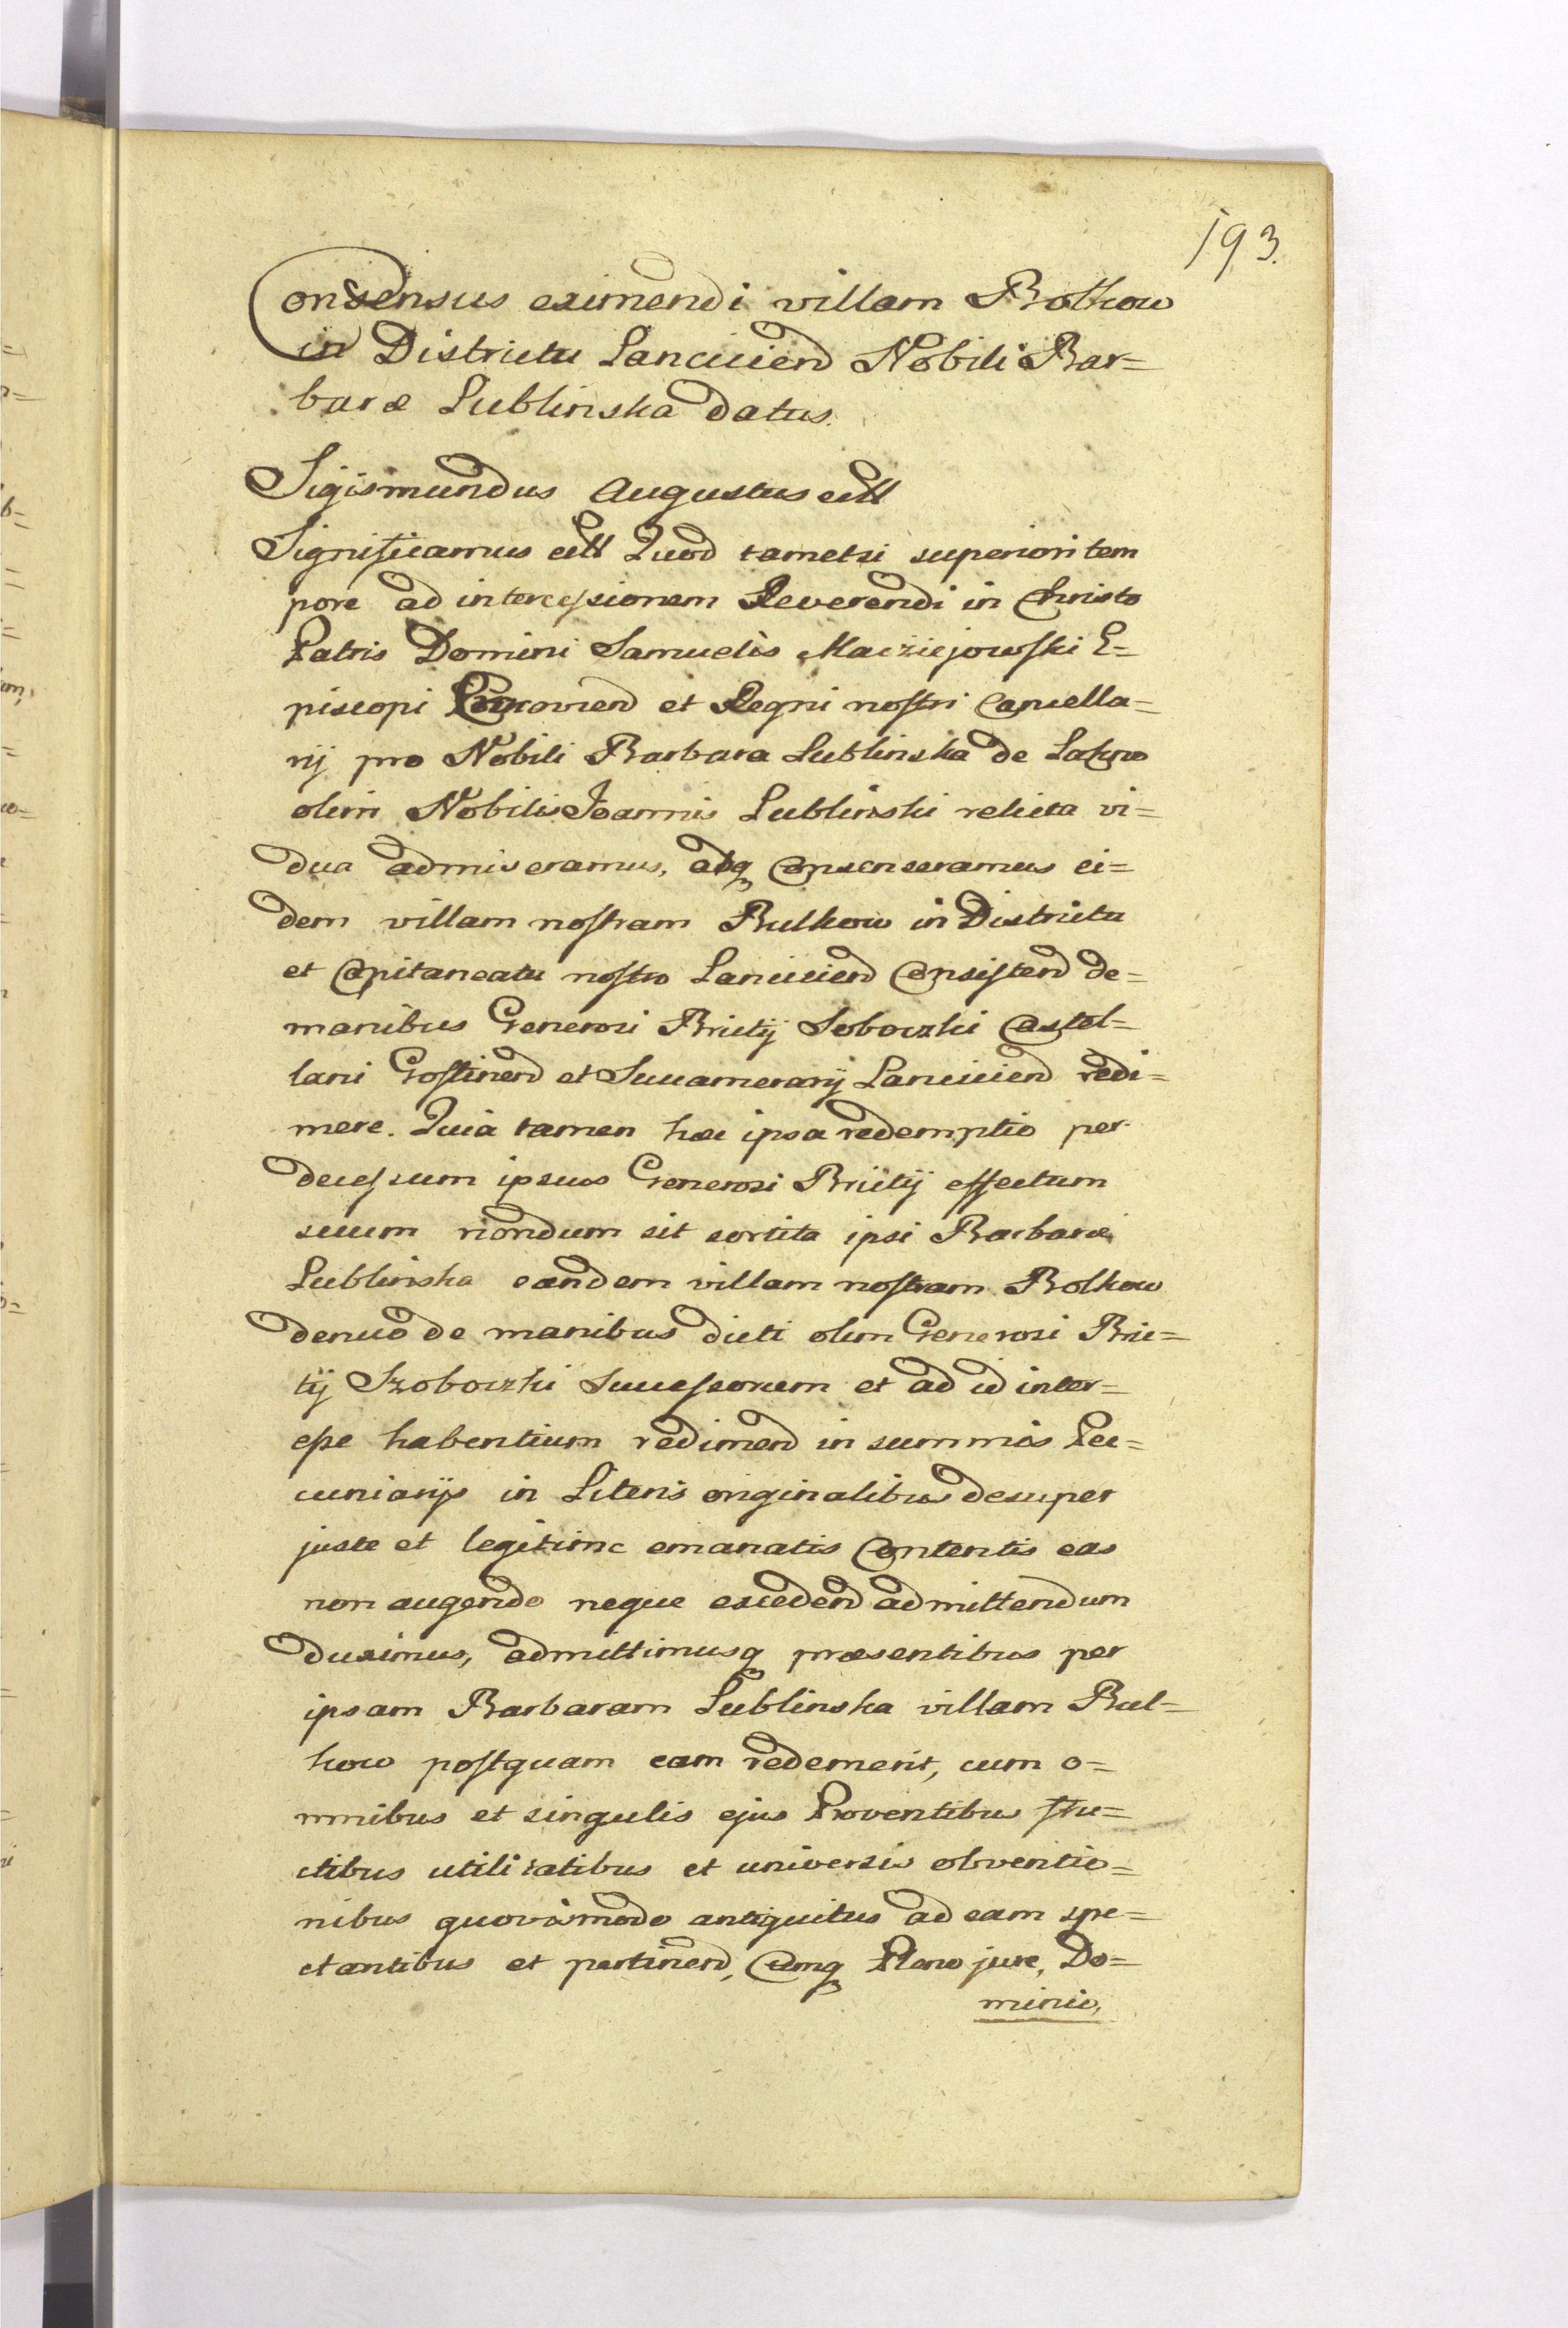 193.
Consensus eximendi villam Bolkow
in Districtu Lanciciend Nobili Bar=
baræ Lublinska datus.
Sigismundus Augustus ettt
Significamus ettt Quod tametsi superiori tem
pore ad intercessionem Reverendi in Christo
Patris Domini Samuelis Macziejowski E=
piscopi Cracoviend et Regni nostri Cancella=
rij pro Nobili Barbara Lublinska de
olim Nobilis Joannis Lublinski relicta vi=
dua admiseramus, atq Consenseramus ei=
dem villam nostram Bulkow in Districtu
et Capitaneatu nostro Lanciciend Consistend de=
manibus Generosi Brictij Soboczki Castel=
lani Gostinend et Succamerarij Lanciciend redi=
mere. Quia tamen hæc ipsa redemptio per
decessum ipsius Generosi Briitij effectum
suum nondum sit sortita ipsi Barbaræ
Lublinska eandem villam nostram Bolkow
denuo de manibus dicti olim Generosi Bric=
tij Szoboczki Successorum et ad id inter=
esse habentium redimend in summis Pec=
cuniarijs in Literis originalibus desuper
juste et legitime emanatis Contentis eas
non augendo neque excedend admittendum
duximus, admittimusq præsentibus per
ipsam Barbaram Lublinska villam Bul=
kow postquam eam redemerit, cum o=
mnibus et singulis ejus Proventibus fru=
ctibus utilitatibus et universis obventio=
nibus quovismodo antiquitus ad eam spe=
ctantibus et pertinend, Cumq Pleno jure, Do=
minio,